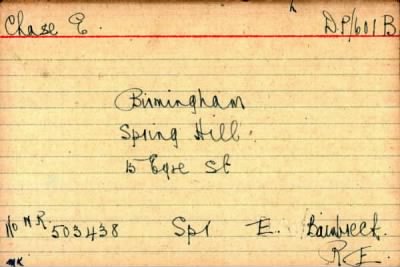 Chase E. DP/601 B
Birmingham
Spring Hill.
15 Eyre St
No N.R. 503438 Spr E.
R.E.
MK